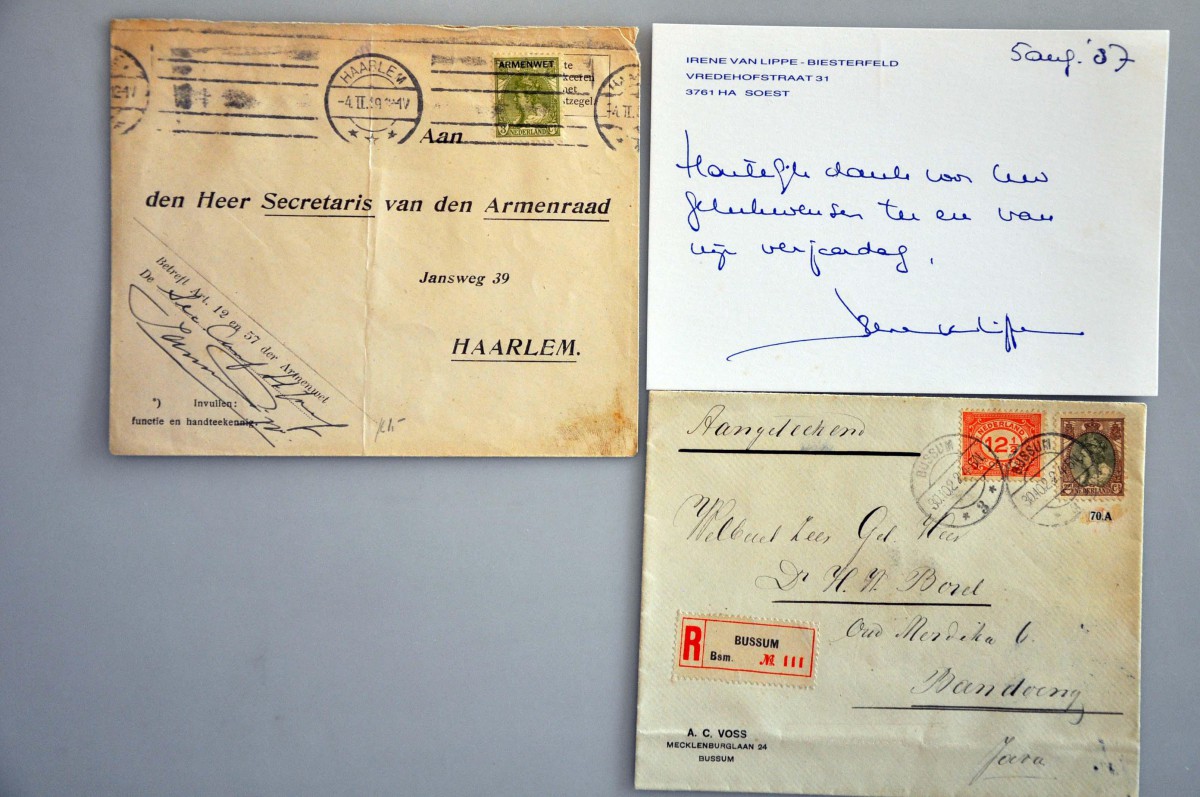 HAARLEM
-4.II.19
ARMENWET
NEDERLAND
te
net
tzegel
Aan
den Heer Secretaris van den Armenraad
Jansweg 39
HAARLEM.
Betreft Art. 12 en 57 der Armenwet
De
*) Invullen:
functie en handteekening.
IRENE VAN LIPPE - BIESTERFELD
VREDEHOFSTRAAT 31
3761 HA SOEST
5 aug. '87
Hartelijk dank voor uw
gelukwensen ter ere van
mijn verjaardag.
Irene van Lippe
Aangeteekend
NEDERLAND
12½
NEDERLAND
BUSSUM
3
BUSSUM
70.A
Zeer Gel Heer
Dr H. W. Borel
Oud Merdika 6.
Bandoeng
Java
R
BUSSUM
Bsm. № 111
A. C. VOSS
MECKLENBURGLAAN 24
BUSSUM